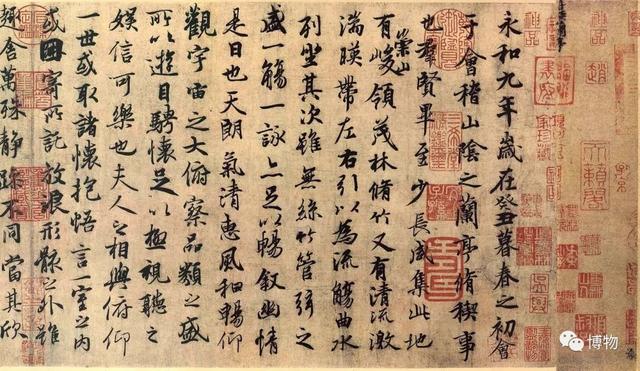 永和九年歲在癸丑暮春之初會
于會稽山陰之蘭亭脩稧事
也羣賢畢至少長咸集此地
有崇山峻領茂林脩竹又有清流激
湍暎帶左右引以為流觴曲水
列坐其次雖無絲竹管弦之
盛一觴一詠亦足以暢敘幽情
是日也天朗氣清惠風和暢仰
觀宇宙之大俯察品類之盛
所以遊目騁懷足以極視聽之
娛信可樂也夫人之相與俯仰
一世或取諸懷抱悟言一室之內
或因寄所託放浪形骸之外雖
趣舍萬殊靜躁不同當其欣
博物